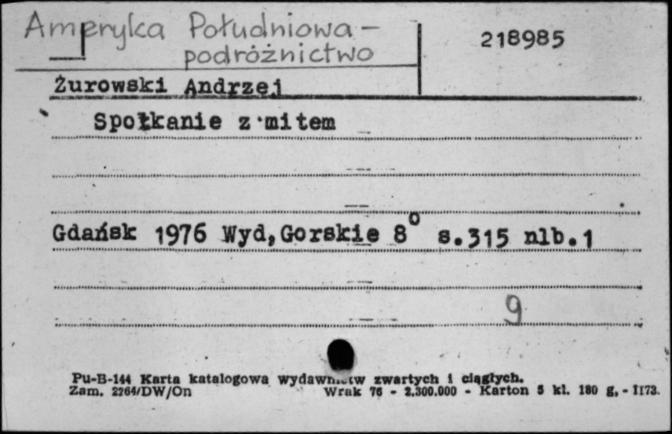 Ameryka Południowa -
podróżnictwo
218985
Żurowski Andrzej
Spotkanie z mitem
Gdańsk 1976 Wyd,Gorskie 8° s.315 nlb.1
9
Pu-B-144 Karta katalogowa wydawnictw zwartych i ciągłych.
Zam. 2264/DW/On Wrak 76 - 2.300.000 - Karton 5 kl. 180 g, - II73.